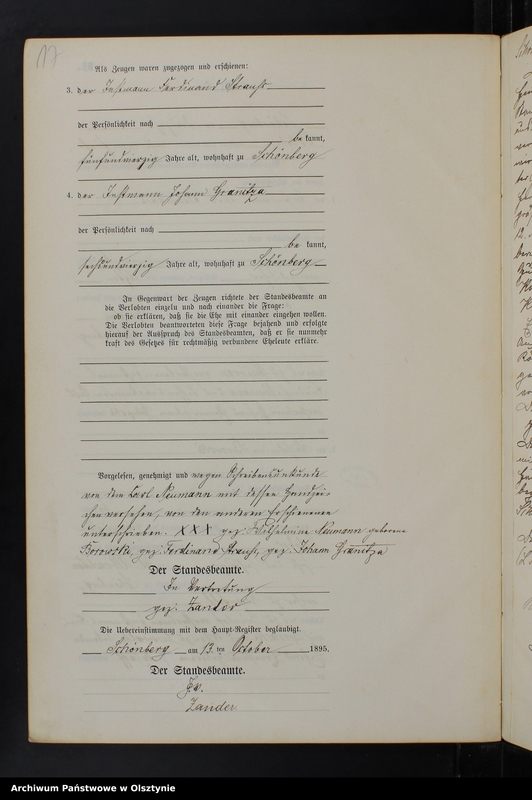 117
Als Zeugen waren zugezogen und erschienen:
3. der Instmann Ferdinand Strauß
der Persönlichkeit nach
be kannt,
fünfundvierzig Jahre alt, wohnhaft zu Schönberg
4. der Instmann Johann Granitza
der Persönlichkeit nach
be kannt,
sechsundvierzig Jahre alt, wohnhaft zu Schönberg
In Gegenwart der Zeugen richtete der Standesbeamte an
die Verlobten einzeln und nach einander die Frage:
ob sie erklären, daß sie die Ehe mit einander eingehen wollen.
Die Verlobten beantworteten diese Frage bejahend und erfolgte
hierauf der Ausspruch des Standesbeamten, daß er sie nunmehr
kraft des Gesetzes für rechtmäßig verbundene Eheleute erkläre.
Vorgelesen, genehmigt und wegen Schreibensunkunde
von dem Karl Neumann mit dessen Handzei-
chen versehen, von den anderen Erschienenen
unterschrieben. XXX gez: Wilhelmine Neumann geborene
Borowski, gez: Ferdinand Strauß, gez: Johann Granitza
Der Standesbeamte.
In Vertretung
gez: Zander
Die Uebereinstimmung mit dem Haupt-Register beglaubigt.
Schönberg am 13. ten October 1895.
Der Standesbeamte.
J.V.
Zander
Archiwum Państwowe w Olsztynie